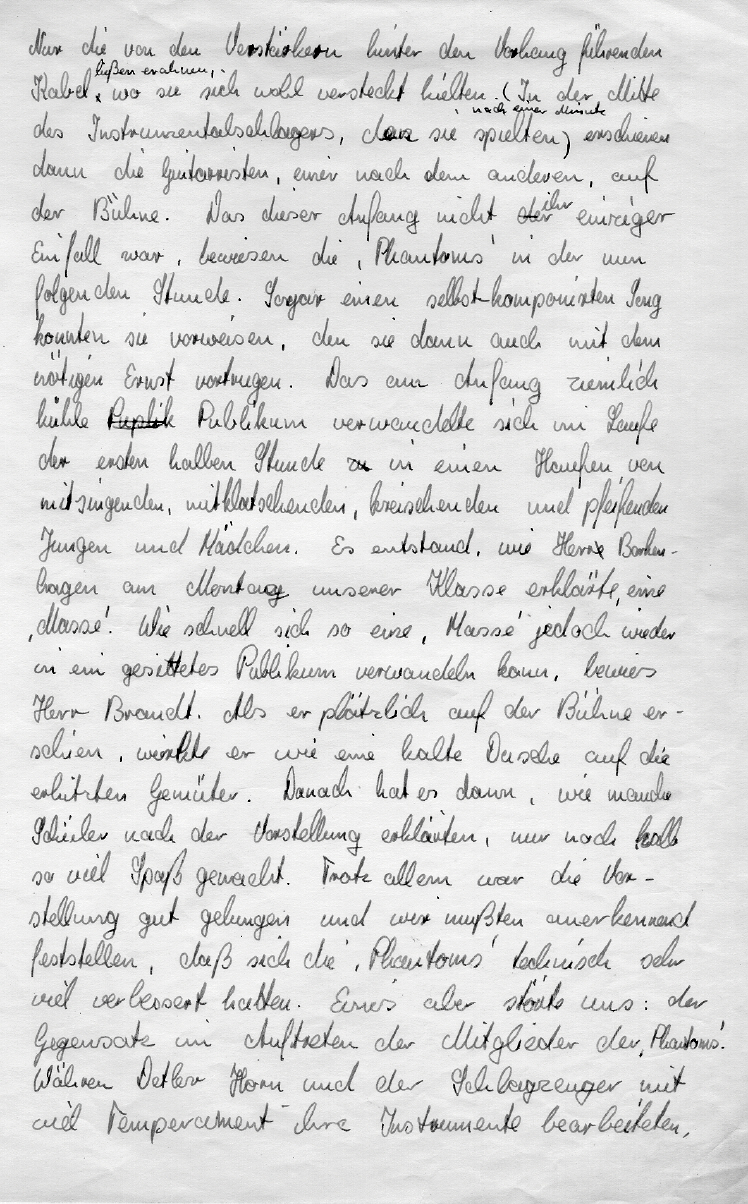 Nur die von den Verstärkern hinter den Vorhang führenden
ließen erahnen,
Kabel, wo sie sich wohl versteckt hielten. (In der Mitte
nach einer Minute
des Instrumentalschlagers, den sie spielten) erschienen
dann die Guitarristen, einer nach dem anderen, auf
der Bühne. Das dieser Anfang nicht der ihr einziger
Einfall war, bewiesen die ‚Phantoms' in der nun
folgenden Stunde. Sogar einen selbst-komponierten Song
konnten sie vorweisen, den sie dann auch mit dem
nötigen Ernst vortrugen. Das am Anfang ziemlich
kühle Puplik Publikum verwandelte sich im Laufe
der ersten halben Stunde zu in einen Haufen von
mitsingenden, mitklatschenden, kreischenden und pfeifenden
Jungen und Mädchen. Es entstand, wie Herr Barken-
hagen am Montag unserer Klasse erklärte, eine
‚Masse'. Wie schnell sich so eine ‚Masse' jedoch wieder
in ein gesittetes Publikum verwandeln kann, bewies
Herr Brandt. Als er plötzlich auf der Bühne er-
schien, wirkte er wie eine kalte Dusche auf die
erhitzten Gemüter. Danach hat es dann, wie manche
Schüler nach der Vorstellung erklärten, nur noch halb
so viel Spaß gemacht. Trotz allem war die Vor-
stellung gut gelungen und wir mußten anerkennend
feststellen, daß sich die ‚Phantoms' technisch sehr
viel verbessert hatten. Eines aber störte uns: der
Gegensatz im Auftreten der Mitglieder der ‚Phantoms'.
Währen Detlev Horn und der Schlagzeuger mit
viel Temperament ihre Instrumente bearbeiteten,